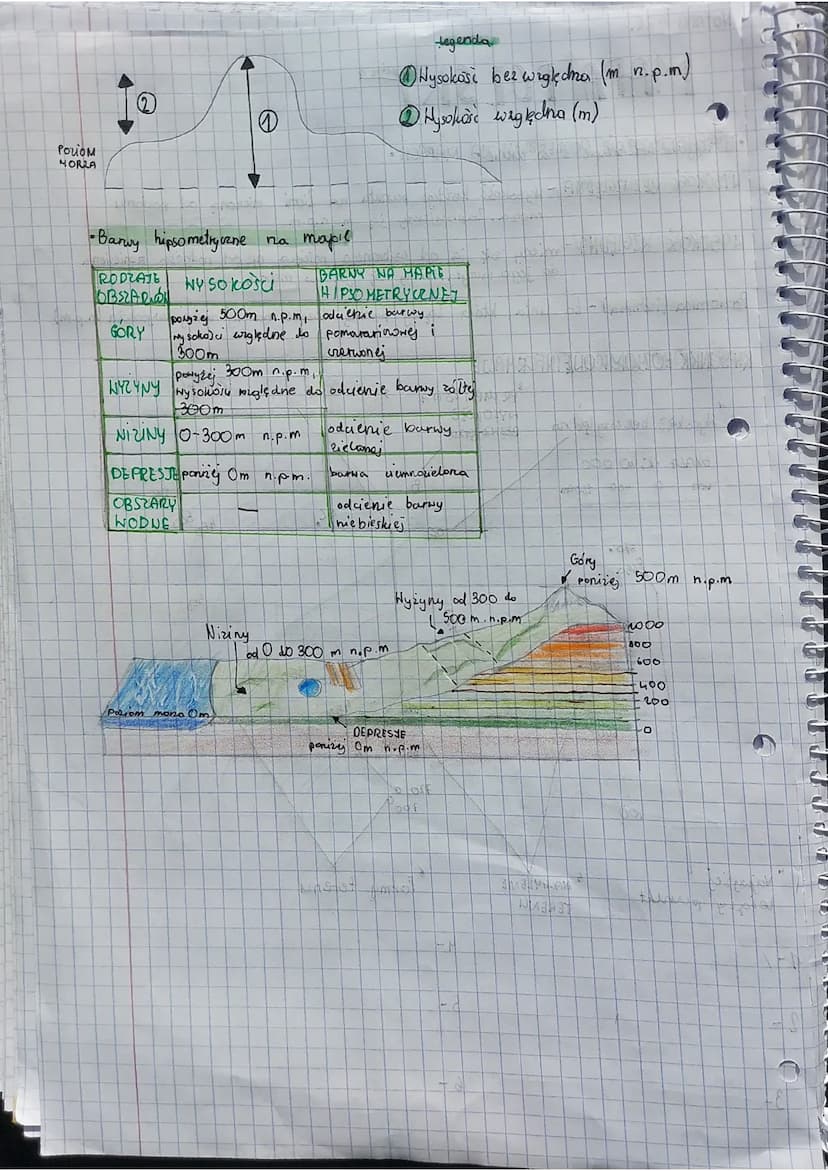 Legenda
① Wysokość bezwzględna (m n.p.m)
② Wysokość względna (m)
②
①
POZIOM
MORZA
• Barwy hipsometryczne na mapie
RODZAJE
OBSZARÓW
WYSOKOŚCI
BARWY NA MAPIE
HIPSOMETRYCZNEJ
GÓRY
powyżej 500m n.p.m,
wysokości względne do
300m
odcienie barwy
pomarańczowej i
czerwonej
WYŻYNY
powyżej 300m n.p.m,
wysokości względne do
300m
odcienie barwy żółtej
NIZINY
0-300m n.p.m
odcienie barwy
zielonej
DEPRESJE
poniżej 0m n.p.m.
barwa ciemnozielona
OBSZARY
WODNE
—
odcienie barwy
niebieskiej
Góry
poniżej 500m n.p.m
Wyżyny od 300 do
500 m.n.p.m
Niziny
od 0 do 300 m n.p.m
1000
800
600
400
200
0
Poziom morza 0m
DEPRESJE
poniżej 0m n.p.m